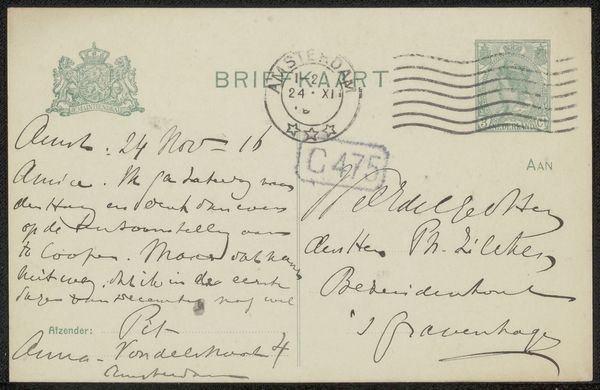 BRIEFKAART
AMSTERDAM
1-2
24 XI
C 475
AAN
Amst. 24 Nov - 16
Amice. Ik ga Zaterdag naar
den Haag en denk dan even
op de tentoonstelling aan
te loopen. Maar dat
niet weg, dat ik in de eerste
dagen van December nog wel
Afzender: Pit
Anna-Vondelstraat 4
Amsterdam
WelEdelgeb Heer
den Heer Ph. Zilcken
Bezuidenhout
's Gravenhage